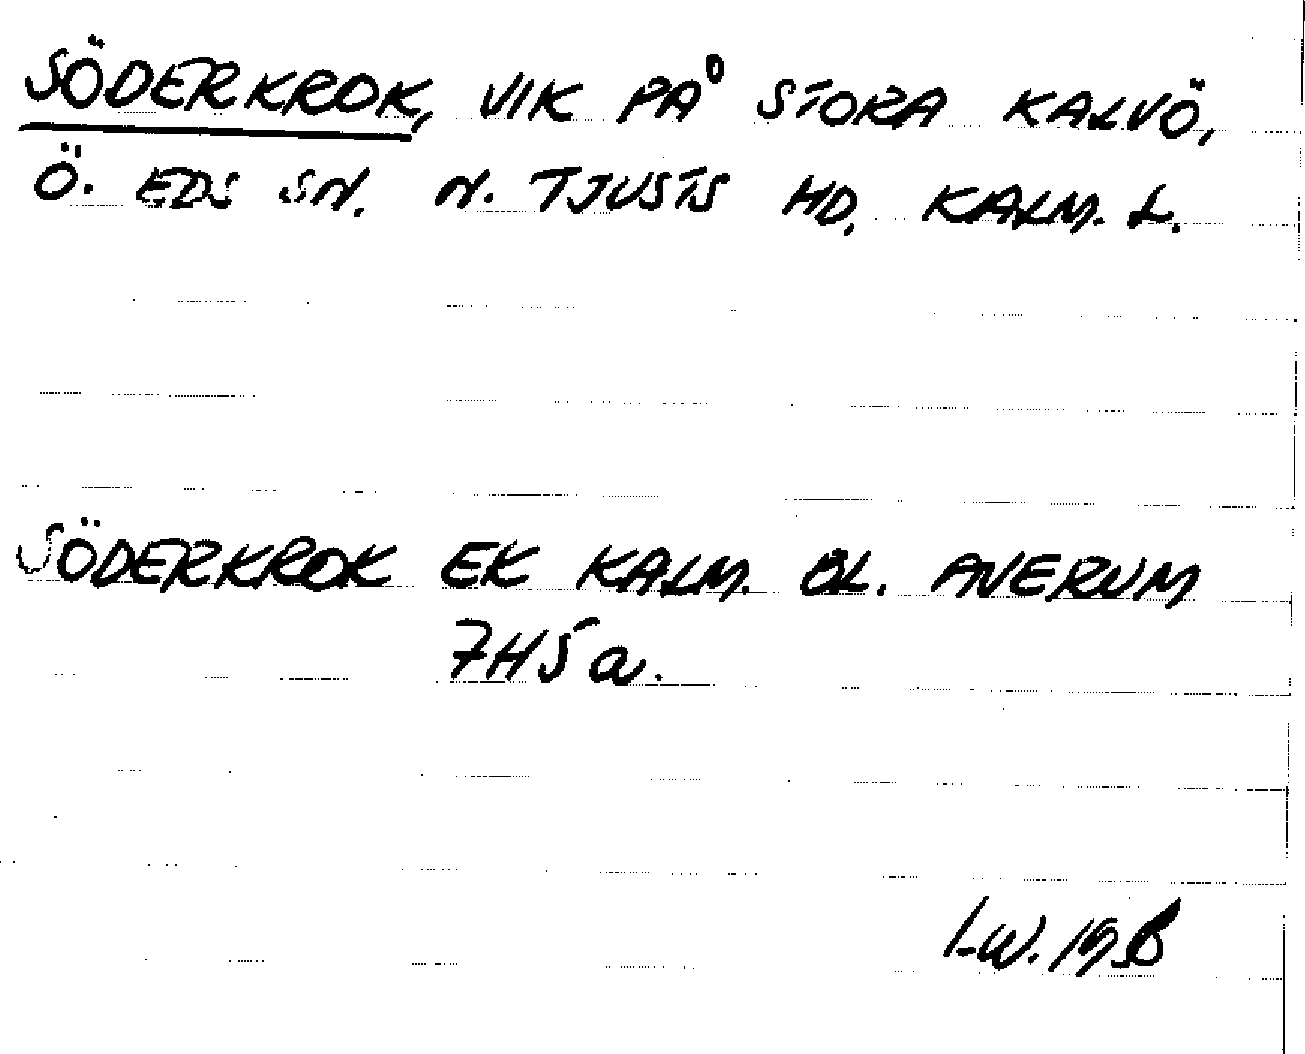 SÖDERKROK, VIK PÅ STORA KALVÖ,
Ö. EDS SN. N. TJUSTS HD. KALM. L.
SÖDERKROK EK KALM. BL. AVERUM
7H5a.